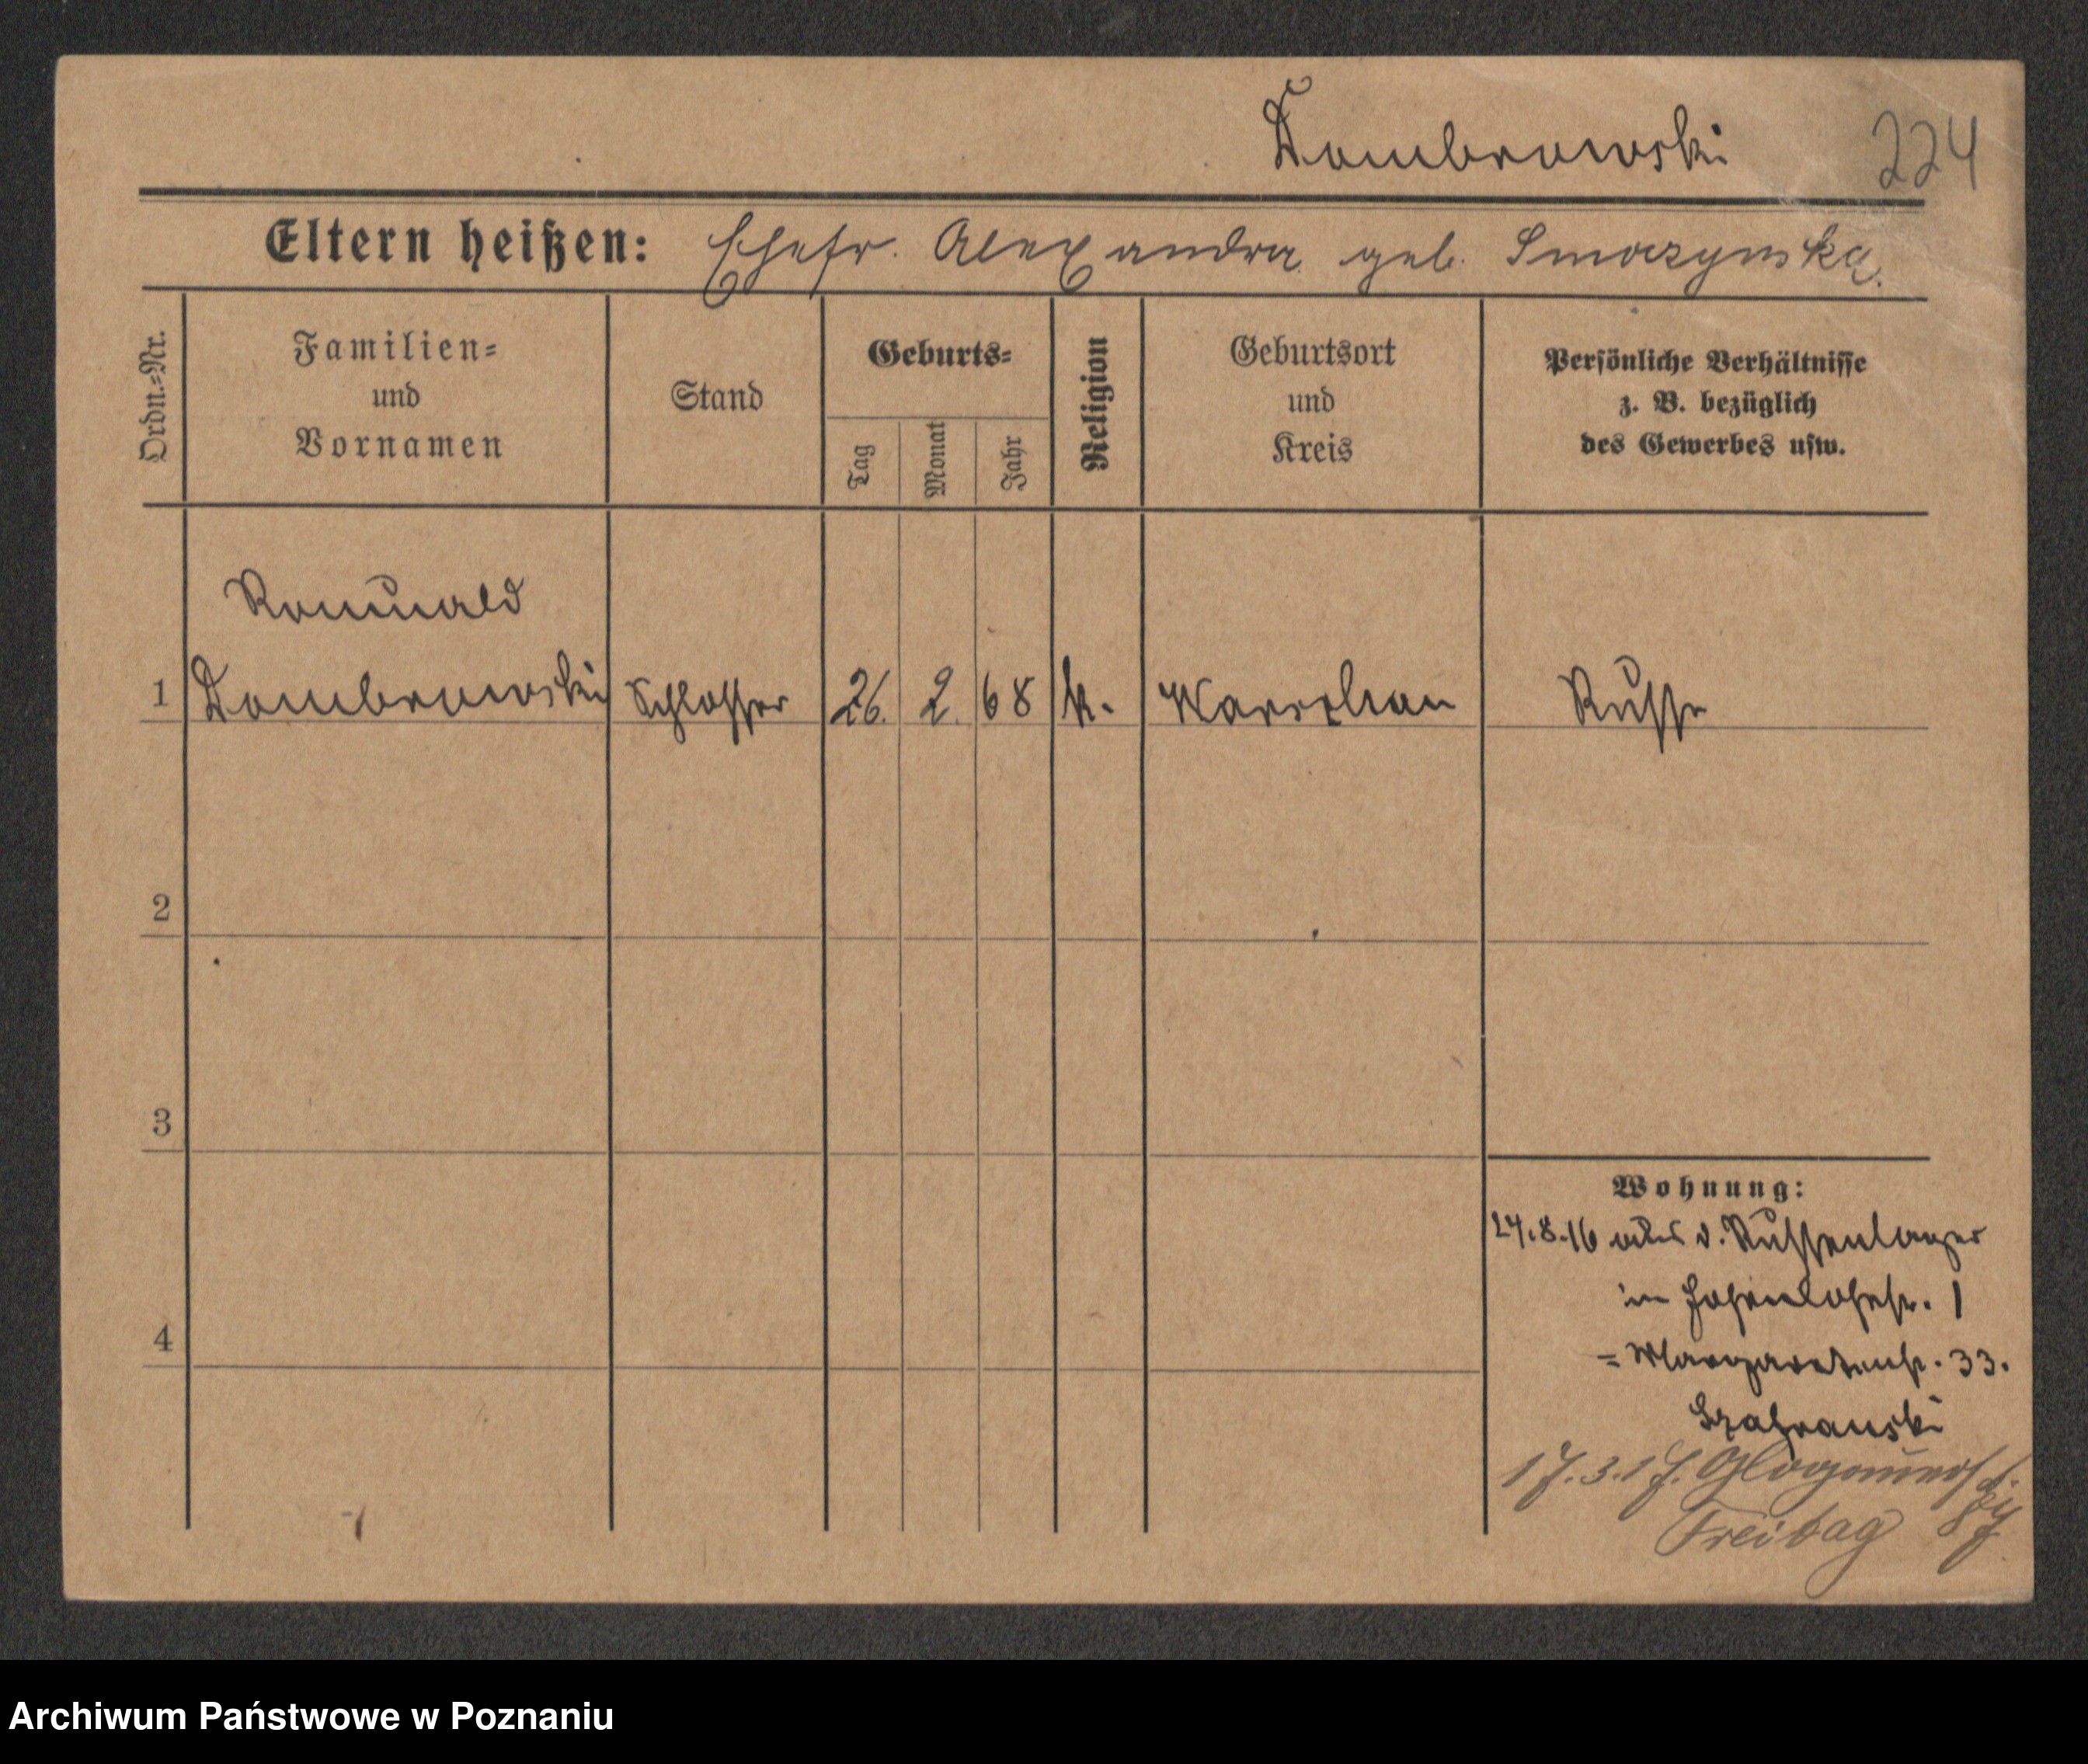 Dombrowski 224
Eltern heißen: Ehefr. Alexandra geb. Smoczynska.
Ordn.-Nr.
Familien-
und
Vornamen
Stand
Geburts-
Tag
Monat
Jahr
Religion
Geburtsort
und
Kreis
Persönliche Verhältnisse
z. B. bezüglich
des Gewerbes usw.
Romuald
1 Dombrowski Schlosser 26. 2. 68 k. Warschau Russe
2
3
4
Wohnung:
24.8.16 aus d. Russenlager
in Hohenlohestr. 1
= Margaretenstr. 33.
Szafranski
17.3.17. Glogauerst.
Freitag 87
Archiwum Państwowe w Poznaniu